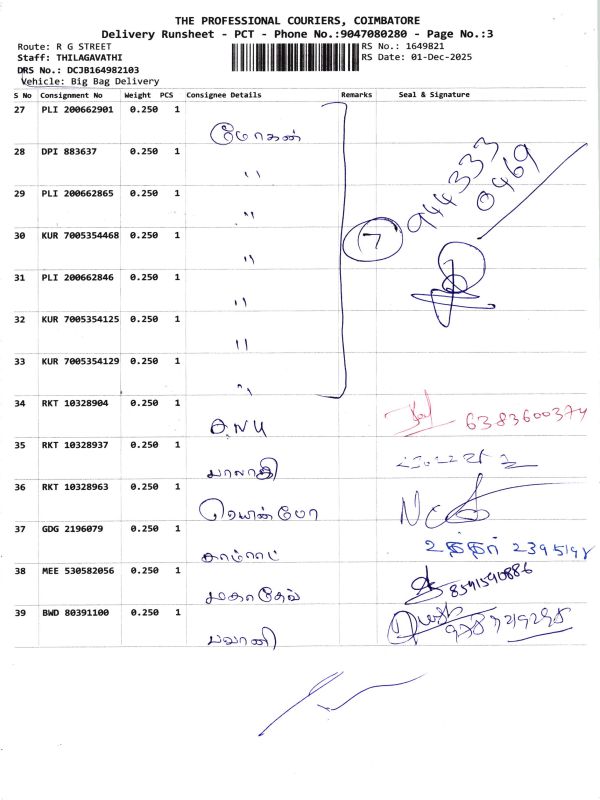 THE PROFESSIONAL COURIERS, COIMBATORE
Delivery Runsheet - PCT - Phone No.:9047080280 - Page No.:3
Route: R G STREET
RS No.: 1649821
Staff: THILAGAVATHI
RS Date: 01-Dec-2025
DRS No.: DCJB164982103
Vehicle: Big Bag Delivery
S No Consignment No Weight PCS Consignee Details Remarks Seal & Signature
27 PLI 200662901 0.250 1
மோகன்
28 DPI 883637 0.250 1
''
29 PLI 200662865 0.250 1
''
30 KUR 7005354468 0.250 1
''
7
944333
0469
31 PLI 200662846 0.250 1
''
32 KUR 7005354125 0.250 1
''
33 KUR 7005354129 0.250 1
''
34 RKT 10328904 0.250 1
6383600374
35 RKT 10328937 0.250 1
பாலாஜி
36 RKT 10328963 0.250 1
37 GDG 2196079 0.250 1
சாம்ராட்
38 MEE 530582056 0.250 1
மகாதேவ்
8591590886
39 BWD 80391100 0.250 1
பவானி